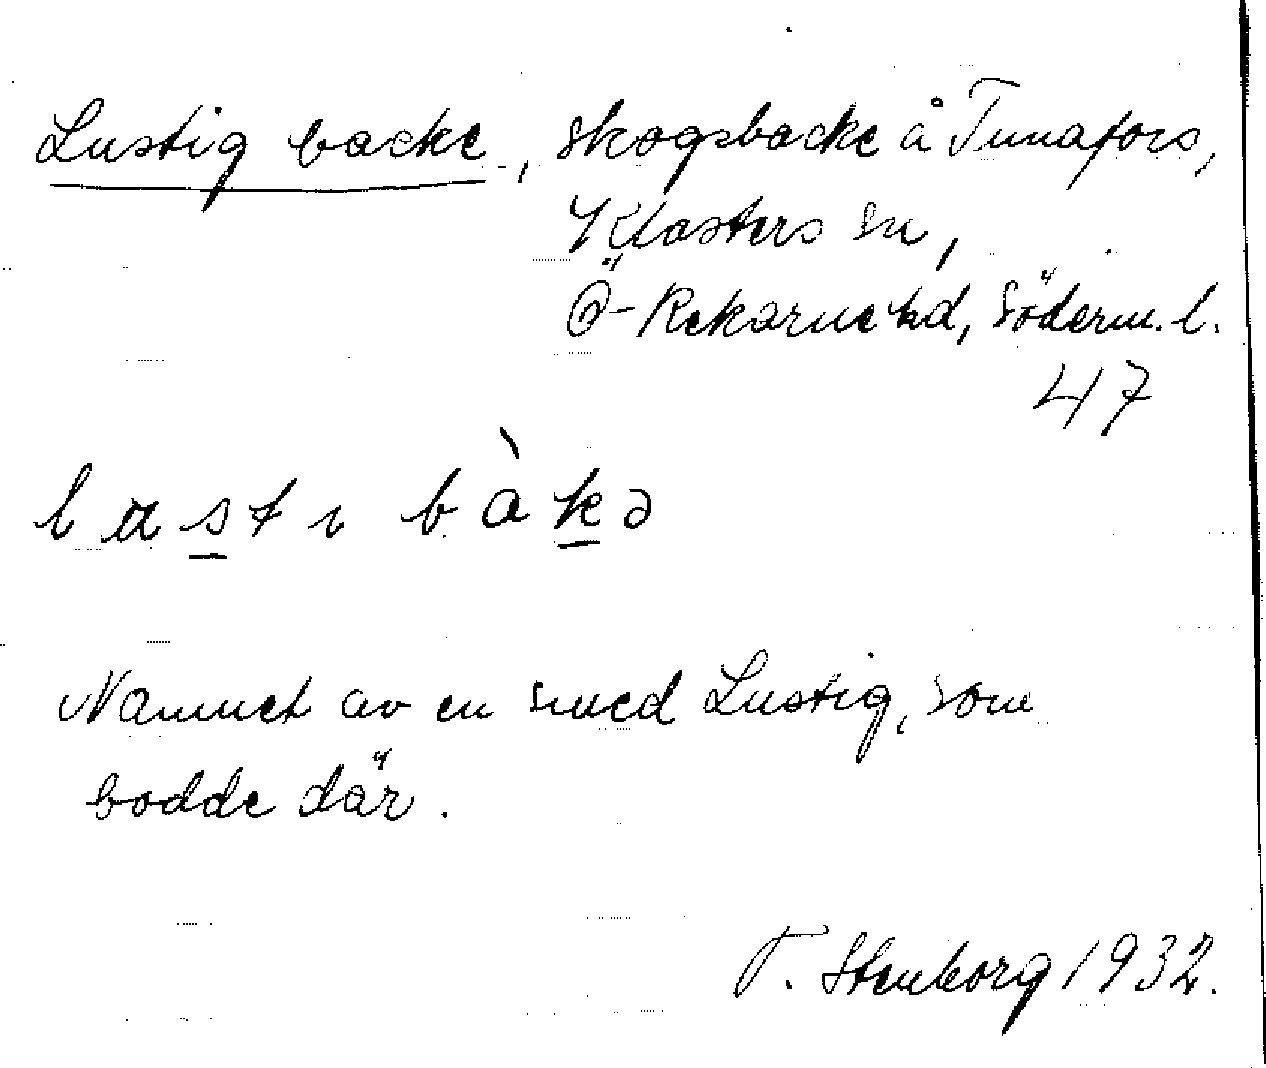 Lustig backe, skogsbacke å Tunafors,
Klosters sn,
Ö-Rekarne hd, Söderm. l.
47
lusti bàkə
Namnet av en smed Lustig, som
bodde där.
T. Stenborg 1932.